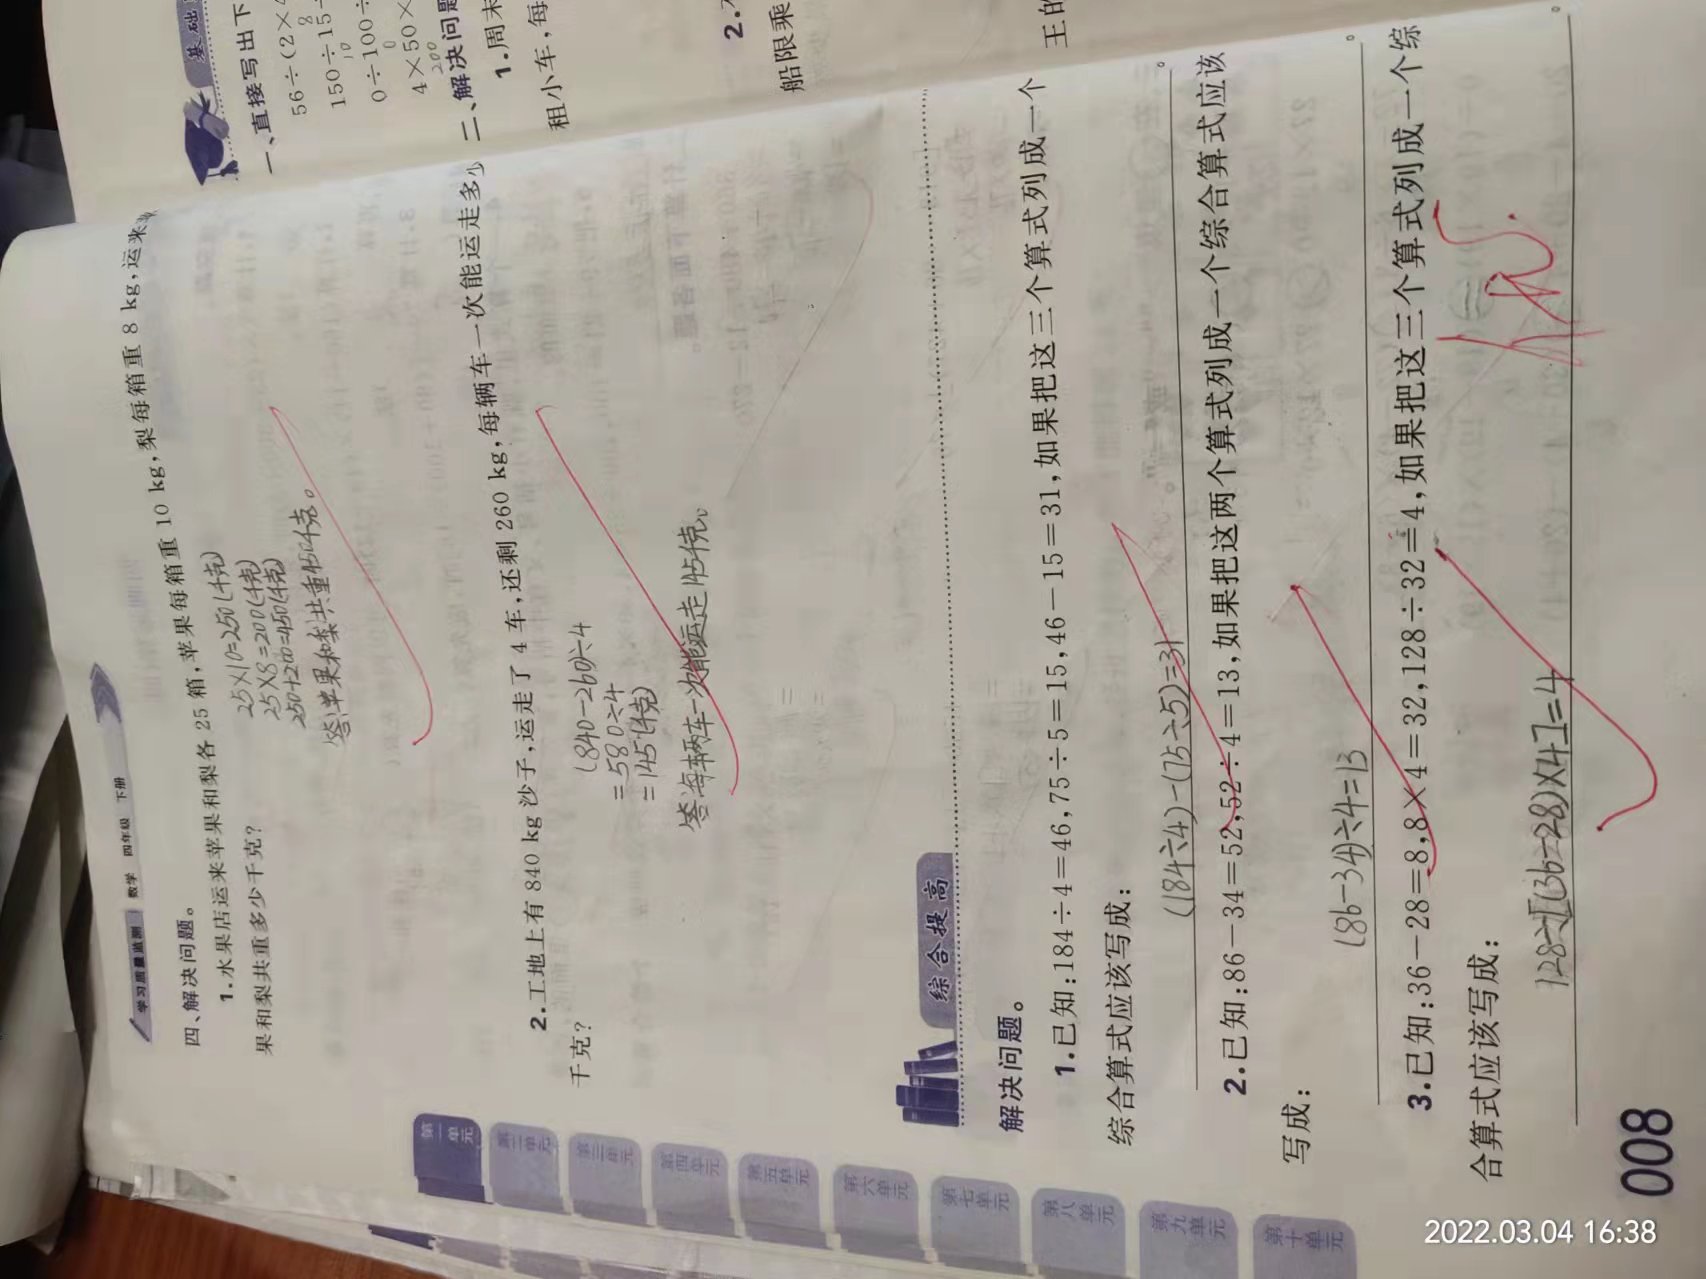 学习质量监测 数学 四年级 下册
四、解决问题。
1.水果店运来苹果和梨各25箱,苹果每箱重10 kg,梨每箱重8 kg,运来苹
果和梨共重多少千克?
25×10=250(千克)
25×8=200(千克)
250+200=450(千克)
答:苹果和梨共重450千克。
2.工地上有840 kg沙子,运走了4车,还剩260 kg,每辆车一次能运走多少
千克?
(840-260)÷4
=580÷4
=145(千克)
答:每辆车一次能运走145千克。
综合提高
解决问题。
1.已知:184÷4=46,75÷5=15,46-15=31,如果把这三个算式列成一个
综合算式应该写成:
(184÷4)-(75÷5)=31
。
2.已知:86-34=52,52÷4=13,如果把这两个算式列成一个综合算式应该
写成:
(86-34)÷4=13
。
3.已知:36-28=8,8×4=32,128÷32=4,如果把这三个算式列成一个综
合算式应该写成:
128÷[(36-28)×4]=4
。
008
第一单元
第二单元
第三单元
第四单元
第五单元
第六单元
第七单元
第八单元
第九单元
第十单元
基础
一、直接写出下
56÷(2×4
8
150÷15-
10
0÷100÷
0
4×50×
200
二、解决问题
1.周末
租小车,每
2.
船限乘
王的
2022.03.04 16:38